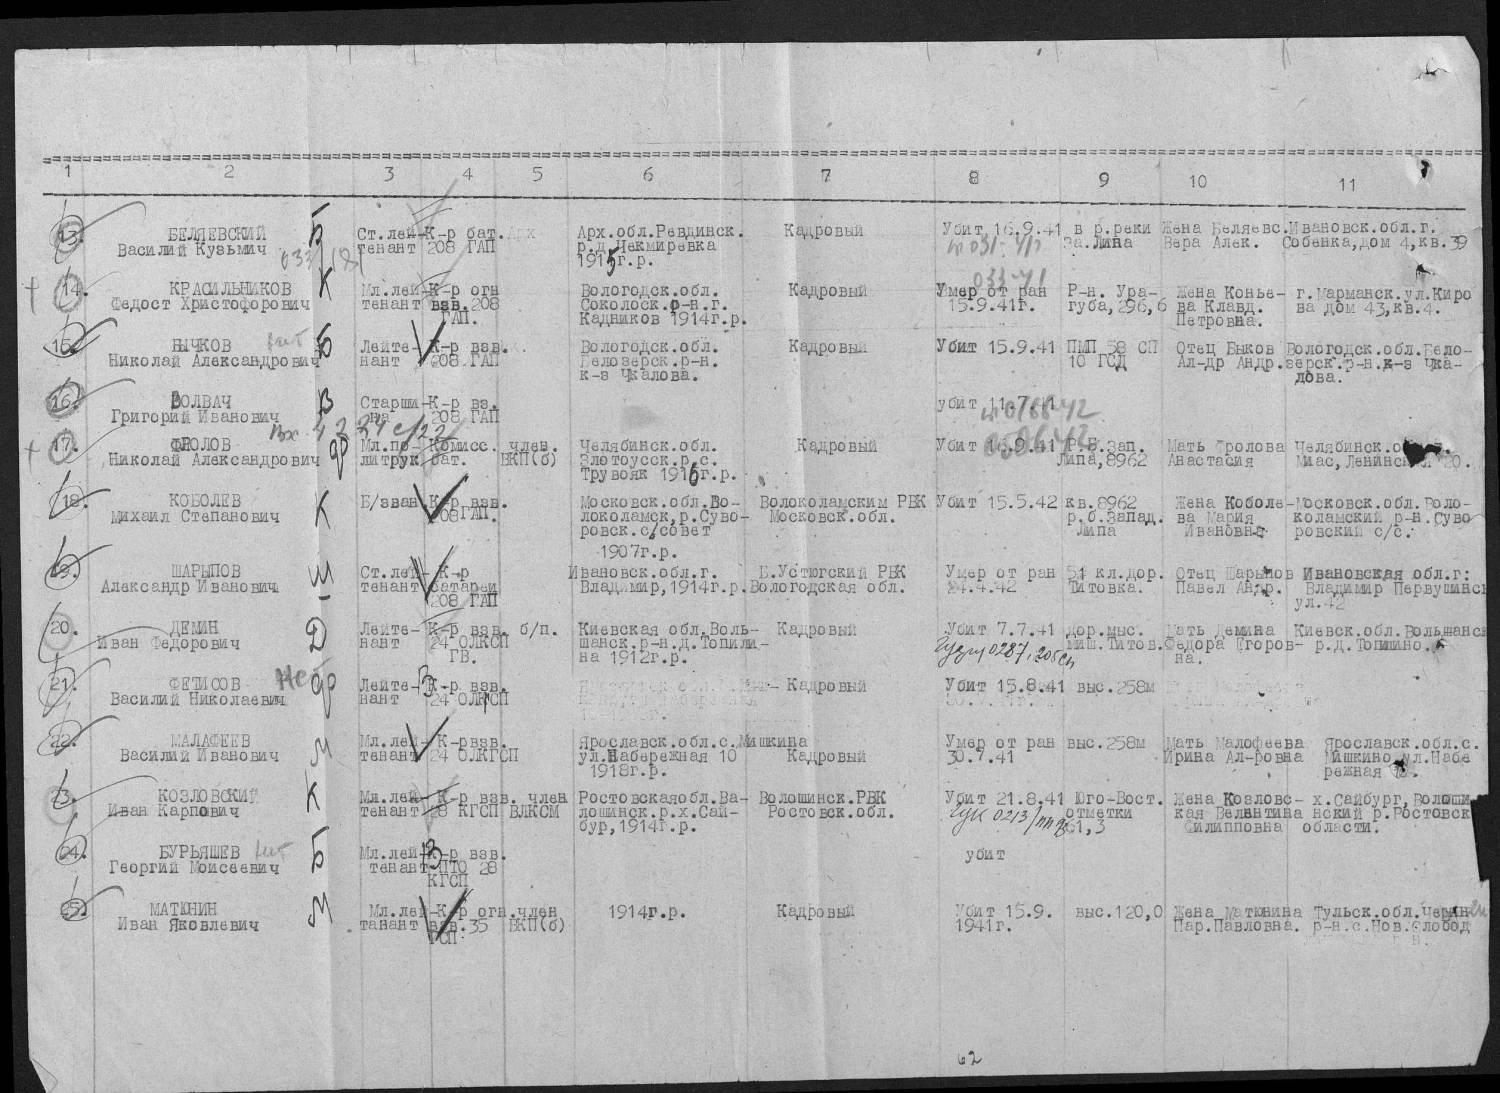 1 2 3 4 5 6 7 8 9 10 11
13. БЕЛЯЕВСКИЙ Б Ст.лей- К-р бат. Арх.обл.Ревдинск. Кадровый Убит 16.9.41 в р.реки Жена Беляевс. Ивановск.обл.г.
Василий Кузьмич тенант 208 ГАП р.д.Чекмиревка За.Лица Вера Алек. Собенка,дом 4,кв.39
1915г.р.
14. КРАСИЛЬНИКОВ К Мл.лей- К-р огн Вологодск.обл. Кадровый Умер от ран Р-н. Ура- Жена Конье- г.Марманск.ул.Киро
Федост Христофорович тенант взв. 208 Соколоск.р-н.г. 15.9.41г. губа,296,6 ва Клавд. ва дом 43,кв.4.
ГАП. Кадников 1914г.р. Петровна.
15. БЫЧКОВ Б Лейте- К-р взв. Вологодск.обл. Кадровый Убит 15.9.41 ПМП 58 СП Отец Быков Вологодск.обл.Бело-
Николай Александрович нант 208 ГАП Белозерск.р-н. 10 ГСД Ал-др Андр. зерск.р-н.к-з Чка-
к-з Чкалова. лова.
16. ВОЛВАЧ В Старши- К-р вз. убит 11.7.41
Григорий Иванович на 208 ГАП
17. ФРОЛОВ Ф Мл.по- Комисс. член. Челябинск.обл. Кадровый Убит 16.9.41 Р.З.зап. Мать Фролова Челябинск.
Николай Александрович литрук бат. ВКП(б) Злотоусск.р.с. Липа,8962 Анастасия Миас,Ленинск
Трувояк 1916г.р.
18. КОБОЛЕВ К Б/зван К-р взв. Московск.обл.Во- Волоколамским РВК Убит 15.5.42 кв.8962 Жена Коболе- Московск.обл.Воло-
Михаил Степанович 208 ГАП. локоламск,р.Суво- Московск.обл. р.б.Запад. ва Мария коламский р-н.Суво
ровск.с/совет Липа Ивановна ровский с/с.
1907г.р.
19. ШАРЫПОВ Ш Ст.лей- К-р Ивановск.обл.г. В.Устюгский РВК Умер от ран 51 кл.дор. Отец Шарыпов Ивановская обл.г.
Александр Иванович тенант батареи Владимир,1914г.р. Вологодская обл. 24.4.42 Титовка. Павел Андр. Владимир Первушинск
208 ГАП ул.42
20. ДЕМИН Д Лейте- К-р взв. б/п. Киевская обл.Воль- Кадровый Убит 7.7.41 дор.мыс. Мать Демина Киевск.обл.Вольшанск
Иван Федорович нант 24 ОЛКСП шанск.р-н.д.Топили- миш.Титов. Федора Егоров- р.д.Топилино.
ГВ. на 1912г.р. на.
21. ФЕТИСОВ Ф Лейте- К-р взв. Кадровый Убит 15.8.41 выс.258м
Василий Николаевич нант 24 ОЛКСП
22. МАЛАФЕЕВ М Мл.лей- К-рвзв. Ярославск.обл.с.Мишкина Умер от ран выс.258м Мать Малофеева Ярославск.обл.с.
Василий Иванович тенант 24 ОЛКГСП ул.Набережная 10 Кадровый 30.7.41 Ирина Ал-ровна Мишкино,ул.Набе
1918г.р. режная
23. КОЗЛОВСКИЙ К Мл.лей- К-р взв. член Ростовскаяобл.Ва- Волошинск.РВК Убит 21.8.41 Юго-Вост. Жена Козловс- х.Сайбург,Волоши
Иван Карпович тенант 28 КГСП ВЛКСМ лошинск.р.х.Сай- Ростовск.обл. отметки кая Валентина нский р.Ростовск
бур,1914г.р. 61,3 Филипповна области.
24. БУРЬЯШЕВ Б Мл.лей- К-р взв. убит
Георгий Моисеевич тенант ПТО 28
КГСП
25. МАТЮНИН М Мл.лей- К-р огн. член 1914г.р. Кадровый Убит 15.9. выс.120,0 Жена Матюнина Тульск.обл.Черн
Иван Яковлевич танант взв.35 ВКП(б) 1941г. Пар.Павловна. р-н.с.Нов.Слобод
ГСП.
62